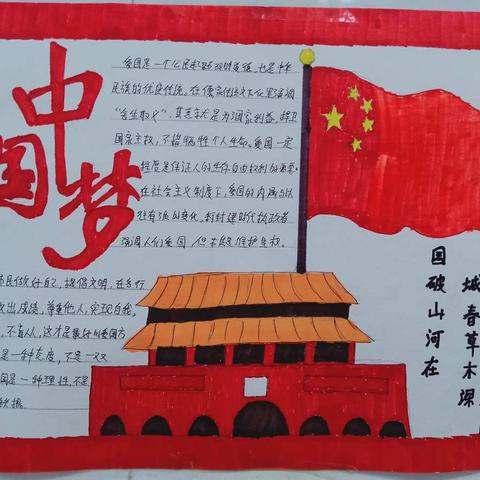 中国梦
爱国是一个公民起码的道德，也是中华
民族的优良传统。在儒家传统文化里强调
"舍生取义"，其意义大是为国家利益，捍卫
国家主权，不惜牺牲个人生命。爱国一定
程度是保证人的生存自由权利的需要。
在社会主义制度下，爱国的内涵
与封建时代执政者
强调人们爱国
民做好自己，提倡文明，在各行
出成绩，尊重他人，实现自我。
不盲从，这才是最好的爱国方
是一种态度，不是一双
国是一种理性，不是
国破山河在
城春草木深